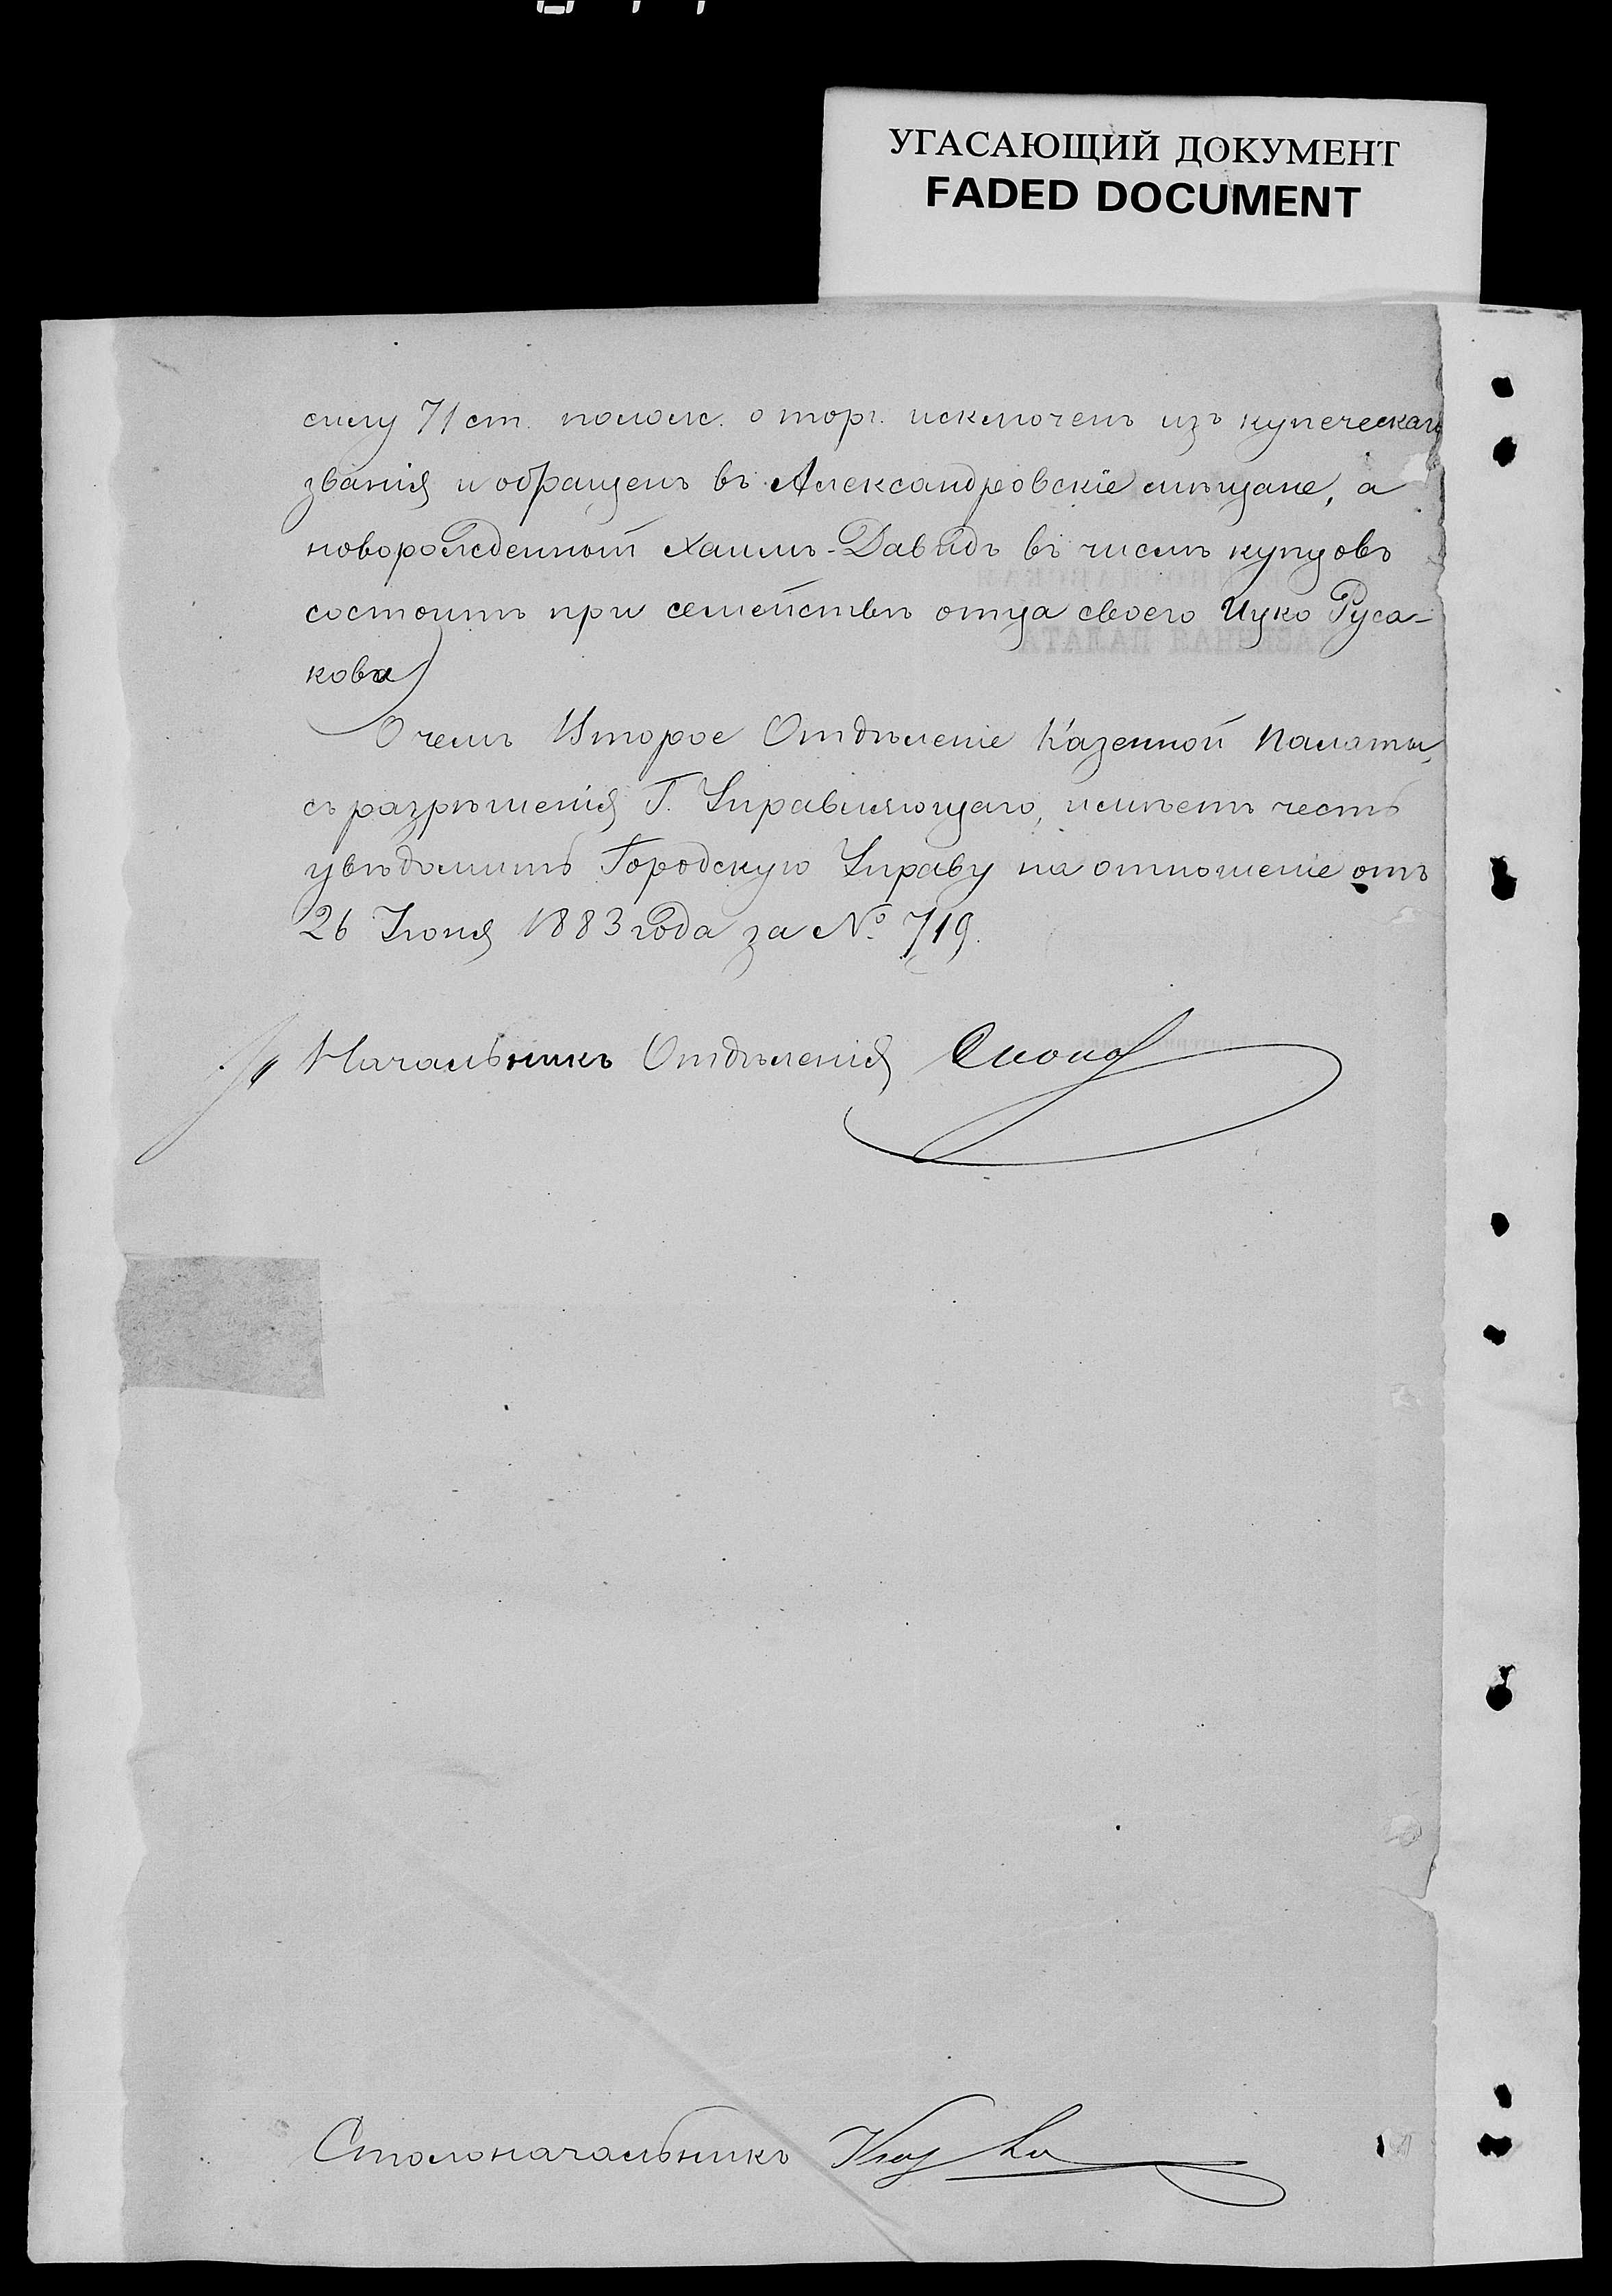 УГАСАЮЩИЙ ДОКУМЕНТ
FADED DOCUMENT
силу 71 ст. полож. о торг. исключенъ изъ купеческаго
званія и обращенъ въ Александровскіе мѣщане, а
новорожденный Хаимъ-Давидъ въ числѣ купцовъ
состоитъ при семействѣ отца своего Ицко Руса-
кова)
О чемъ Второе Отдѣленіе Казенной Палаты,
съ разрѣшенія Г. Управляющаго, имѣетъ честь
увѣдомить Городскую Управу на отношеніе отъ
26 Іюня 1883 года за № 719.
Начальникъ Отдѣленія
Столоначальникъ